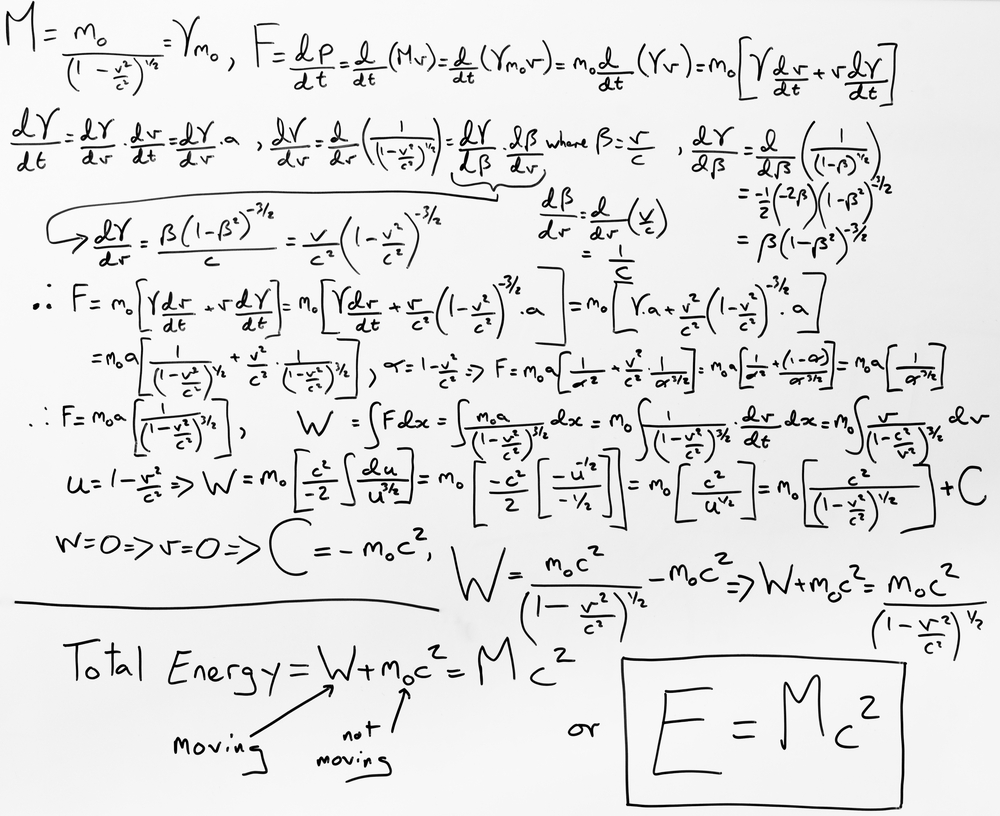 M = m₀/(1 - v²/c²)^½ = γm₀, F = dp/dt = d/dt(Mv) = d/dt(γm₀v) = m₀ d/dt(γv) = m₀[γ dv/dt + v dγ/dt]
dγ/dt = dγ/dv · dv/dt = dγ/dv · a, dγ/dv = d/dv(1/(1-v²/c²)^½) = dγ/dβ · dβ/dv where β = v/c, dγ/dβ = d/dβ(1/(1-β)^½)
= -½(-2β)(1-β²)^-3/2
= β(1-β²)^-3/2
dβ/dv = d/dv(v/c)
= 1/c
dγ/dv = β(1-β²)^-3/2/c = v/c²(1-v²/c²)^-3/2
∴ F = m₀[γ dv/dt + v dγ/dt] = m₀[γ dv/dt + v/c²(1-v²/c²)^-3/2 · a] = m₀[γ·a + v²/c²(1-v²/c²)^-3/2 · a]
= m₀a[1/(1-v²/c²)^½ + v²/c² · 1/(1-v²/c²)^3/2], α = 1-v²/c² => F = m₀a[1/α² + v²/c² · 1/α^3/2] = m₀a[1/α² + (1-α)/α^3/2] = m₀a[1/α^3/2]
∴ F = m₀a[1/(1-v²/c²)^3/2], W = ∫F dx = ∫m₀a/(1-v²/c²)^3/2 dx = m₀∫1/(1-v²/c²)^3/2 · dv/dt dx = m₀∫v/(1-c²/v²)^3/2 dv
u = 1-v²/c² => W = m₀[c²/-2 ∫du/u^3/2] = m₀[-c²/2 [-u^-½/-½]] = m₀[c²/u^½] = m₀[c²/(1-v²/c²)^½] + C
W=0 => v=0 => C = -m₀c², W = m₀c²/(1-v²/c²)^½ - m₀c² => W+m₀c² = m₀c²/(1-v²/c²)^½
Total Energy = W+m₀c² = Mc²
moving
not
moving
or
E = Mc²